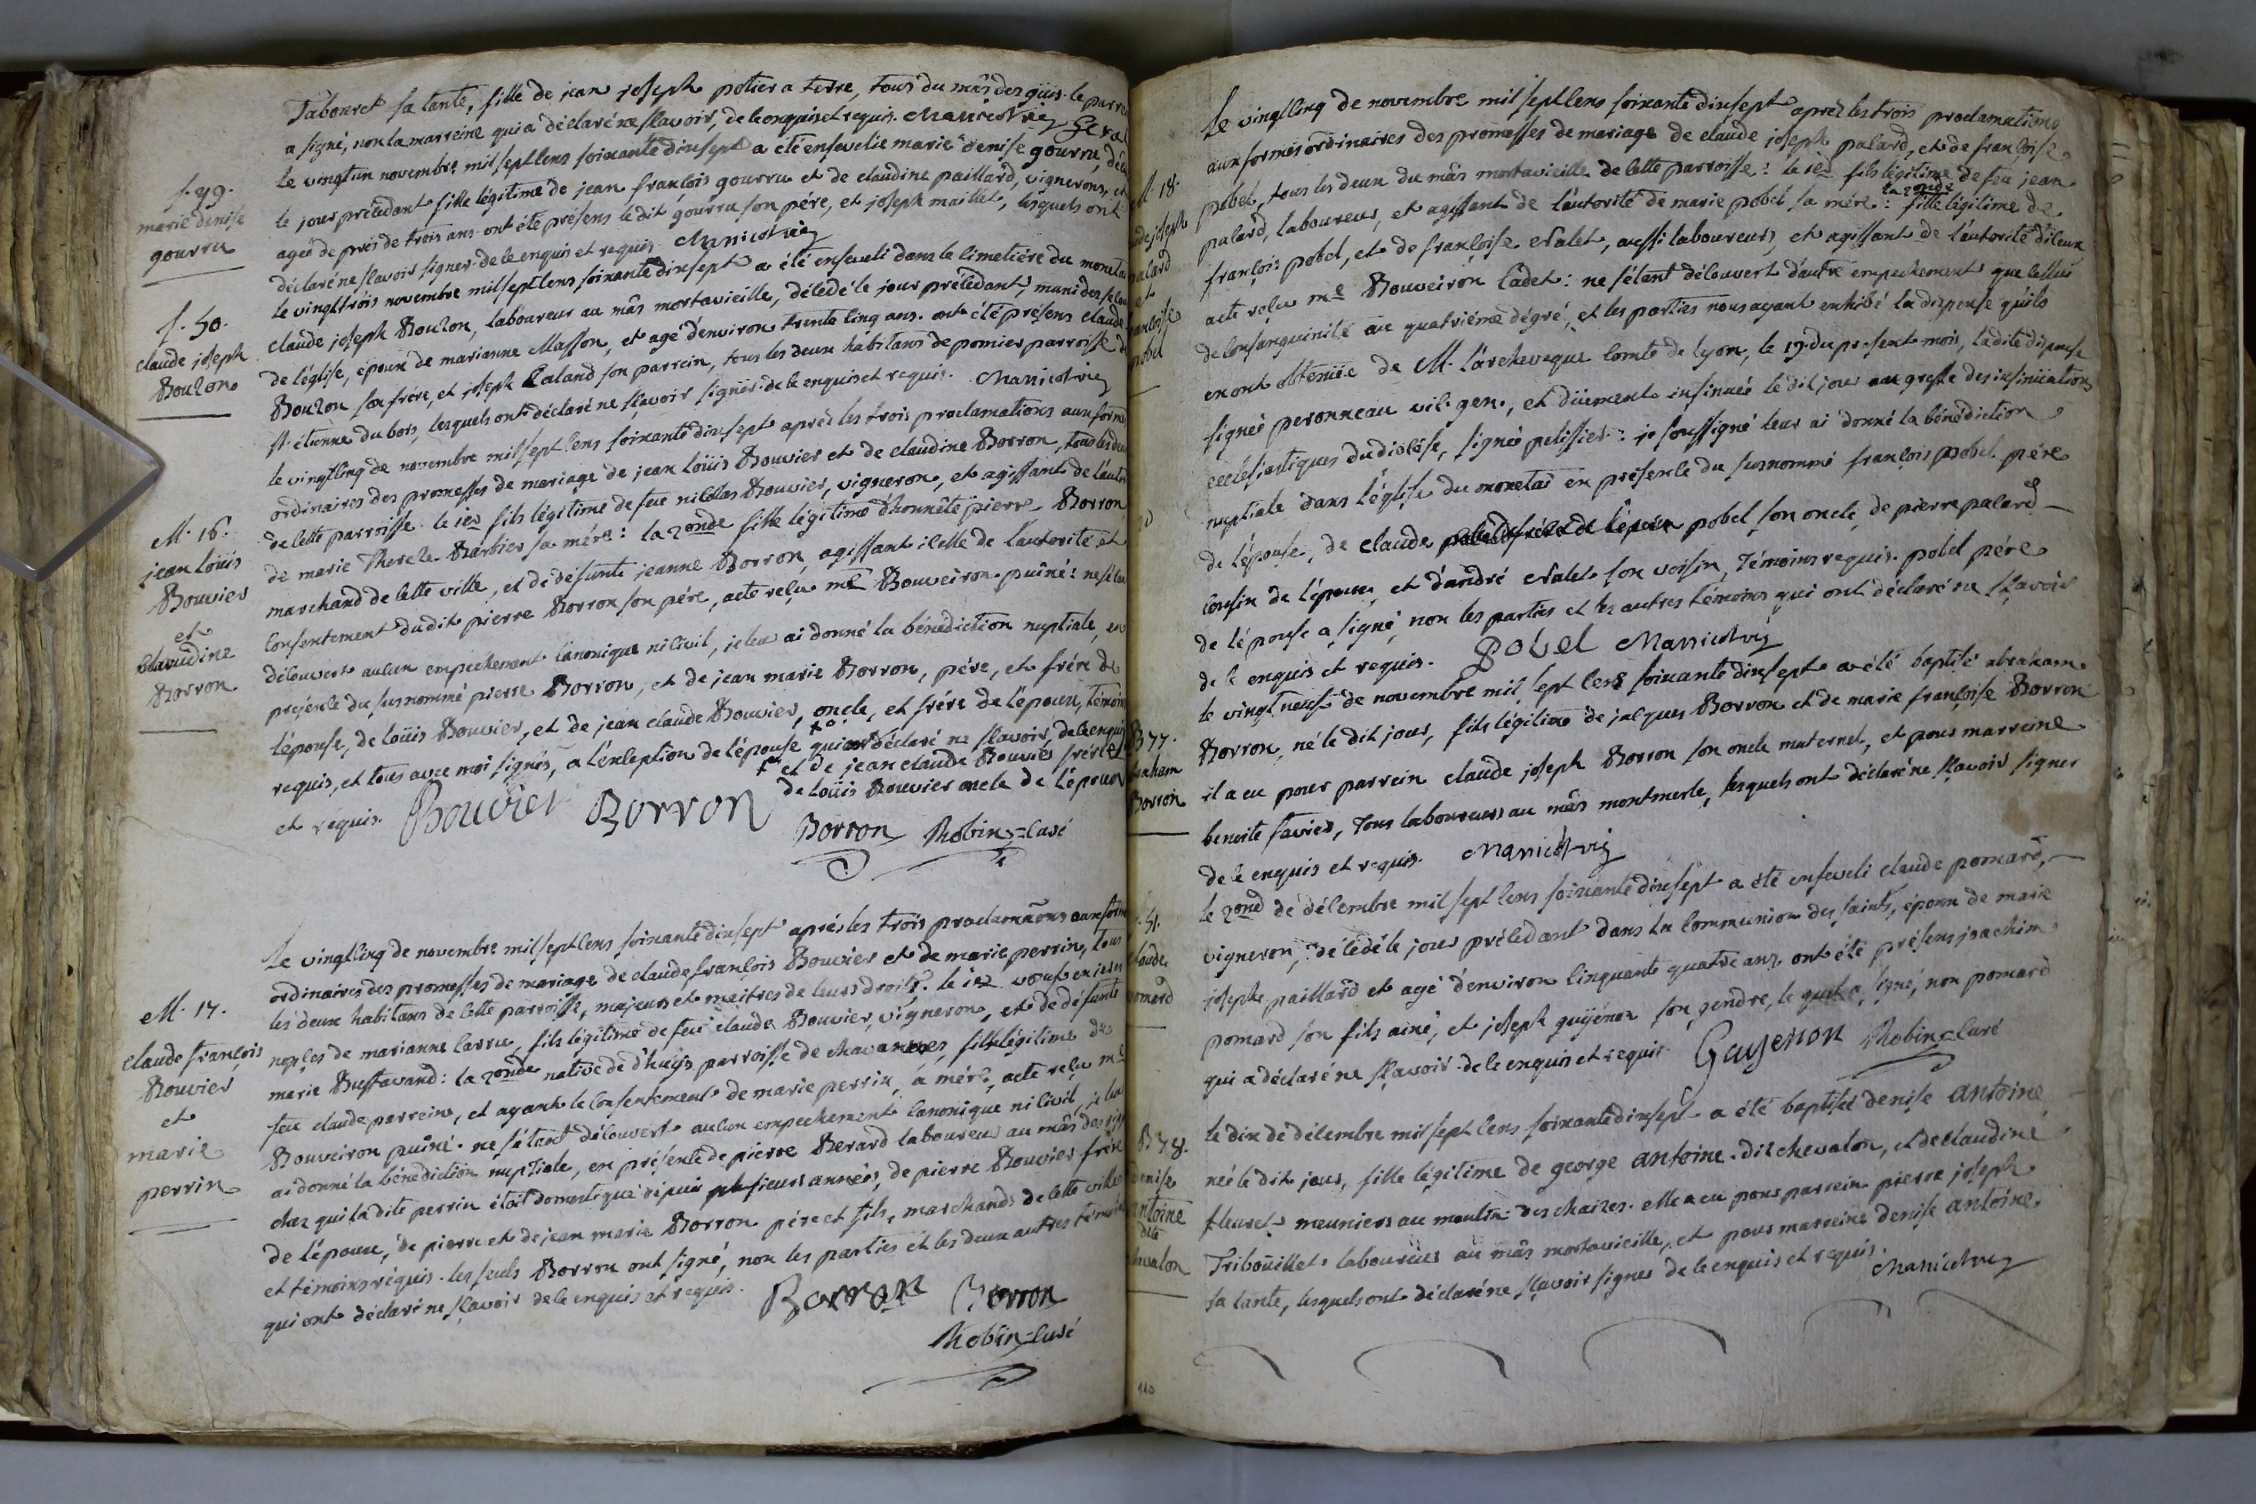 Tabouret sa tante, fille de jean joseph potier a terre, tous du mâs des guis. le parre
a signé, non la marreine qui a déclaré ne sçavoir, de ce enquis et requis. Manicot vic
f. 49.
marie denise
gourru
le vingt un novembre mil sept cens soixante dix sept a été ensevelie marie denise gourru, décé
le jour précédant fille légitime de jean françois gourru et de claudine paillard, vignerons, et
agée de près de trois ans. ont été présens le dit gourru son père, et joseph maillet, lesquels ont
déclaré ne sçavoir signer de ce enquis et requis. Manicot vic
f. 50.
claude joseph
Bouzon
le vingt trois novembre mil sept cens soixante dix sept a été enseveli dans le cimetière du moneta
claude joseph Bouzon, laboureur au mâs mortavieille, décédé le jour précédant, muni des
de l'église, époux de marianne Masson, et agé d'environ trente cinq ans. ont été présens claude
Bouzon son frère, et joseph Caland son parrein, tous les deux habitans de pomier parroisse d
st. étienne du bois, lesquels ont déclaré ne sçavoir signer de ce enquis et requis. Manicot vic
M. 16.
jean loüis
Bouvier
et
claudine
Borron
le vingt cinq de novembre mil sept cens soixante dix sept après les trois proclamations aux forme
ordinaires des promesses de mariage de jean loüis Bouvier et de claudine Borron, tous les deux
de cette parroisse. le 1er fils légitime de feu nicolas Bouvier, vigneron, et agissant de l'autor
de marie Thereze Barbier sa mére: la 2onde fille légitime d'honnête pierre Borron
marchand de cette ville, et de défunte jeanne Borron, agissant icelle de l'autorité et
consentement du dit pierre Borron son pére, acte reçu me Bouveiron puîné: ne s'étan
découvert aucun empechement canonique ni civil, je leur ai donné la bénédiction nuptiale, en
présence du susnommé pierre Borron, et de jean marie Borron, pére, et frére de
l'épouse, de loüis Bouvier, et de jean claude Bouvier, oncle, et frére de l'époux, témoins
requis, et tous avec moi signés, a l'exception de l'épouse qui ont déclaré ne sçavoir, de ce enquis
et requis.
et de jean claude Bouvier frére et
de loüis Bouvier oncle de l'époux
Bouvier Borron
Borron Robin=curé
M. 17.
claude françois
Bouvier
et
marie
perrin
Le vingt cinq de novembre mil sept cens soixante dix sept aprés les trois proclamãons aux forme
ordinaires des promesses de mariage de claude françois Bouvier et de marie perrin, tous
les deux habitans de cette parroisse, majeurs et maitres de leurs droits. le 1er veuf en 1eres
nopces de marianne carru, fils légitime de feu claude Bouvier, vigneron, et de défunte
marie Buffavand: la 2onde native de d'huys parroisse de chavannes, fille légitime de
feu claude perrein, et ayant le consentement de marie perrin, a mére, acte reçu me
Bouveiron puîné. ne s'étant découvert aucun empechement canonique ni civil, je leur
ai donné la bénédiction nuptiale, en présente de pierre Berard laboureur au mâs des
chez qui la dite perrin étoit domestique depuis plusieurs années, de pierre Bouvier frére
de l'époux, de pierre et de jean marie Borron pére et fils, marchands de cette ville
et témoins requis. les seuls Borron ont signé, non les parties et les deux autres témoins
qui ont déclaré ne sçavoir de ce enquis et requis.
Borron Borron
Robin=curé
M. 18.
joseph
palard
et
françoise
pobel
Le vingt cinq de novembre mil sept cens soixante dix sept après les trois proclamations
aux formes ordinaires des promesses de mariage de claude joseph palard, et de françoise
pobel, tous les deux du mâs mortavieille de cette parroisse: le 1er fils légitime de feu jean
palard, laboureur, et agissant de l'autorité de marie pobel sa mére: la 2onde fille légitime de
françois pobel, et de françoise Nalet, aussi laboureurs, et agissant de l'autorité d'iceux
acte reçu me Bouveiron cadet: ne s'étant découvert d'autre empechement que celluï
de consanguinité au quatriéme dégré, et les parties nous ayant exhibé la dispense qu'ils
en ont obtenüe de M. l'archeveque comte de lyon, le 19. du présent mois, la dite dispense
signée peronneau vic. gen., et düement insinuée le dit jour au greffe des insinüations
ecclésiastiques du diocése, signée pelissier: je soussigné leur ai donné la bénédiction
nuptiale dans l'église du monetai en présence du susnommé françois pobel pére
de l'épouse, de claude pobel son oncle, de pierre palard
cousin de l'époux, et d'andré Nalet son voisin, témoins requis. pobel pére
de l'épouse a signé, non les parties et les autres témoins qui ont déclaré ne sçavoir
de ce enquis et requis. Pobel Manicot vic
B 77.
abraham
Borron
le vingt neuf de novembre mil sept cens soixante dix sept a été baptisé abraham
Borron, né le dit jour, fils légitime de jacques Borron et de marie françoise Borron
il a eu pour parrein claude joseph Borron son oncle maternel, et pour marreine
benoite favier, tous laboureurs au mâs montmerle, lesquels ont déclaré ne sçavoir signer
de ce enquis et requis. Manicot vic
f. 51.
claude
pomard
le 2ond de décembre mil sept cens soixante dix sept a été enseveli claude pomard,
vigneron, décédé le jour précédant dans la communion des saints, époux de marie
joseph paillard et agé d'environ cinquante quatre ans. ont été présens joachim
pomard son fils ainé, et joseph guyénon son gendre, le quel a signé, non pomard
qui a déclaré ne sçavoir de ce enquis et requis. Guyenon Robin=curé
B 78.
denise
antoine
dite
chevalon
le dix de décembre mil sept cens soixante dix sept a été baptisée denise antoine
née le dit jour, fille légitime de george antoine dit chevalon, et de claudine
fleuret meuniers au moulin des chaizes. elle a eu pour parrein pierre joseph
Tribouillet laboureur au mâs mortavieille, et pour marreine denise antoine
sa tante, lesquels ont déclaré ne sçavoir signer de ce enquis et requis.
Manicot vic